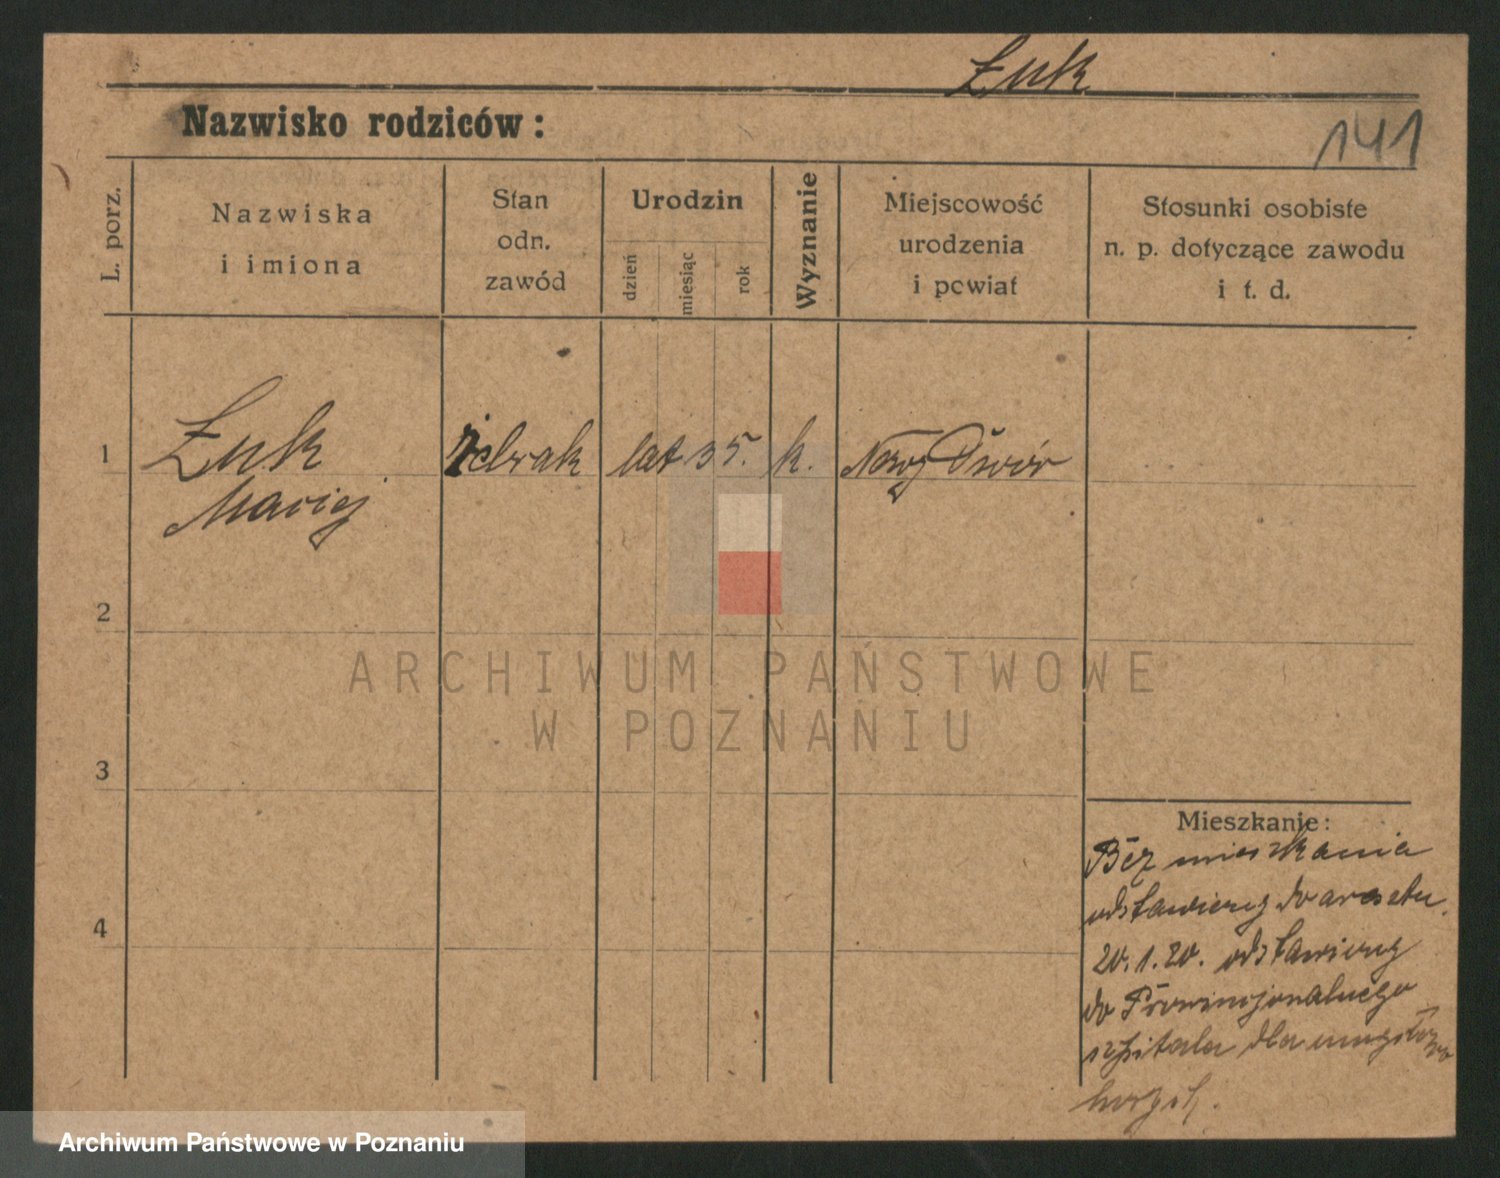 Żuk
Nazwisko rodziców:
141
L. porz.
Nazwiska
i imiona
Stan
odn.
zawód
Urodzin
dzień
miesiąc
rok
Wyznanie
Miejscowość
urodzenia
i powiat
Stosunki osobiste
n. p. dotyczące zawodu
i t. d.
1
Żuk
Maciej
żebrak
lat 35.
k.
Nowy Dwór
2
3
4
Mieszkanie:
Bez mieszkania
odstawiony do aresetu.
20.1.20. odstawiony
do Prowincjonalnego
szpitala dla umysłowo
chorych.
ARCHIWUM PAŃSTWOWE
W POZNANIU
Archiwum Państwowe w Poznaniu